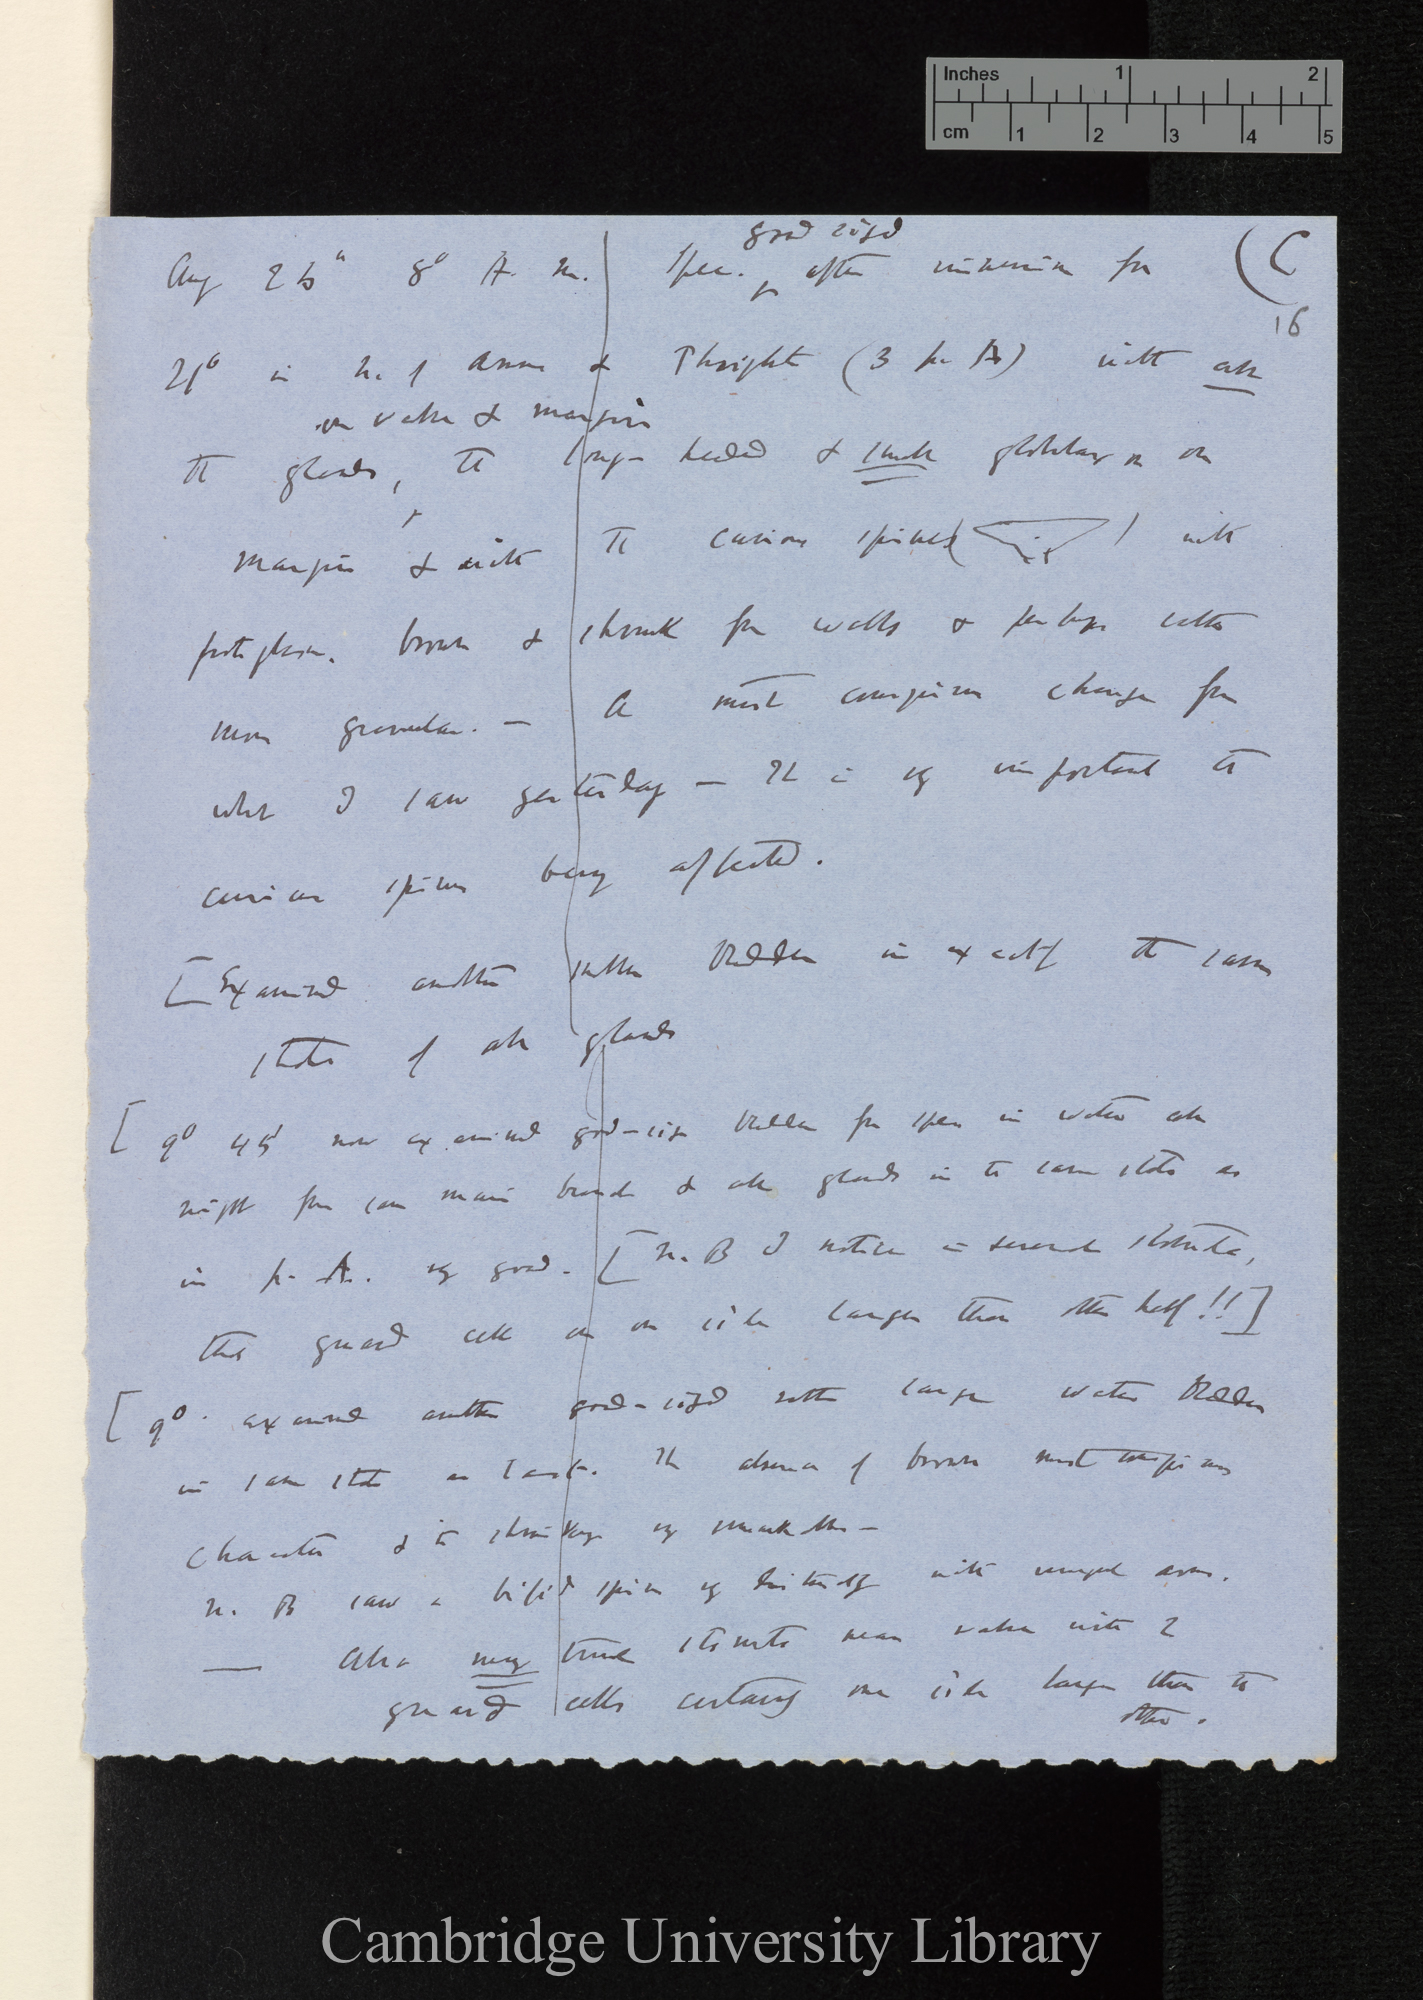 Inches 1 2
cm 1 2 3 4 5
good sized
Aug 25th 8° A. m. Spec. after immersion for
(C
16
in N. of Amm & Phosphate (3 to A) with all
on valve & margin
the glands, the long-headed & small globular on
margin & with the curious spines ( ) with
protoplasm. brown & shrunk from walls & perhaps rather
more granular. — A most conspicuous change from
what I saw yesterday — It is vy important the
curious spines being affected.
[Examined another rather bladder in exactly the same
state of all glands
[9° 45' now examined good-size bladder from spec in water all
night from same main branch & all glands in the same state as
in p. A. vy good. [N. B I notice in several stomata,
that guard cell on one side larger than other half!!]
[9° examined another good-sized rather large water bladder
in same state as last. The absence of brown most conspicuous
character & the shrinkage vy remarkable —
N. B saw a bifid spine vy distinctly with unequal arms.
— Also many true stomata near valve with 2
guard cells certainly one side larger than the
other.
Cambridge University Library